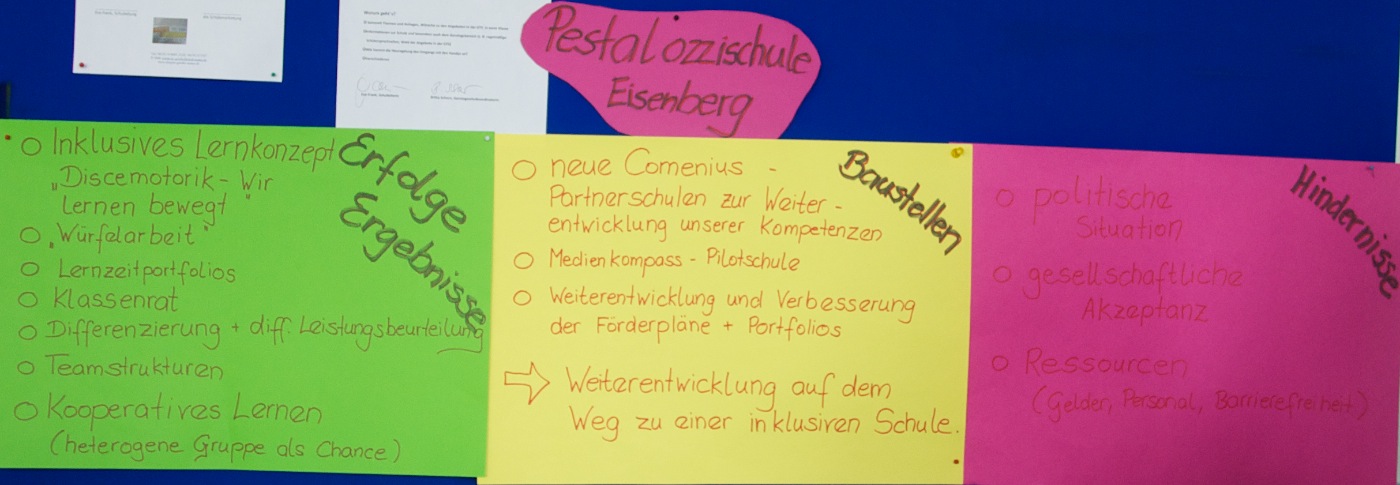 Pestalozzischule
Eisenberg
Erfolge
Ergebnisse
O Inklusives Lernkonzept
„Discemotorik - Wir
lernen bewegt"
O „Würfelarbeit"
O Lernzeitportfolios
O Klassenrat
O Differenzierung + diff. Leistungsbeurteilung
O Teamstrukturen
O Kooperatives Lernen
(heterogene Gruppe als Chance)
Baustellen
O neue Comenius -
Partnerschulen zur Weiter -
entwicklung unserer Kompetenzen
O Medienkompass - Pilotschule
O Weiterentwicklung und Verbesserung
der Förderpläne + Portfolios
⇨ Weiterentwicklung auf dem
Weg zu einer inklusiven Schule.
Hindernisse
O politische
Situation
O gesellschaftliche
Akzeptanz
O Ressourcen
(Gelder, Personal, Barrierefreiheit)